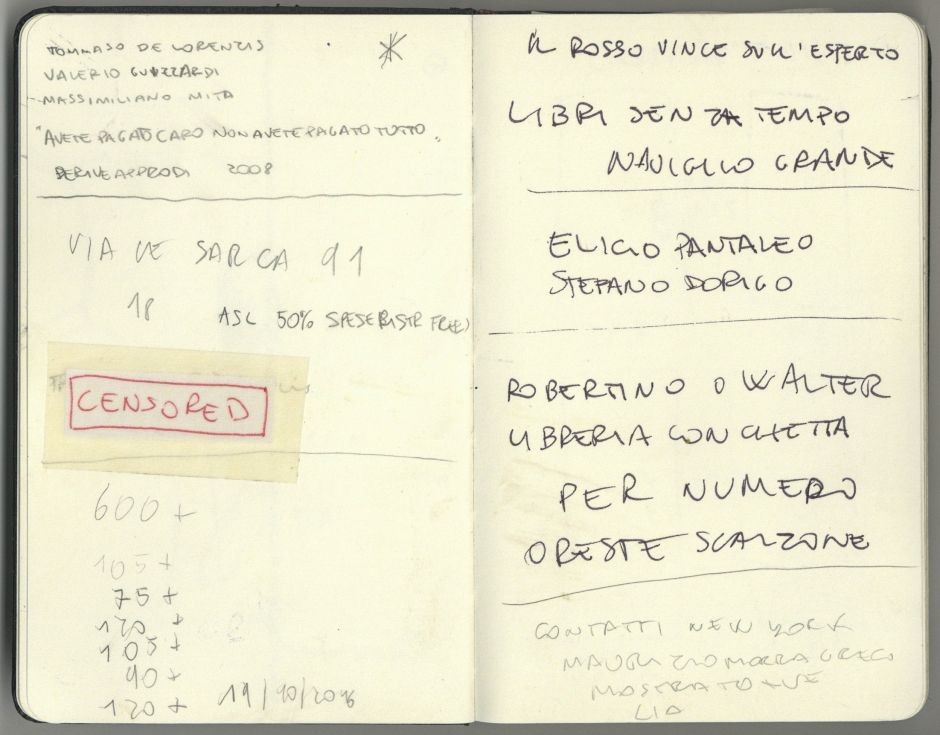 TOMMASO DE LORENZIS
VALERIO GUIZZARDI
MASSIMILIANO MITA
"AVETE PAGATO CARO NON AVETE PAGATO TUTTO"
DERIVEAPPRODI 2008
VIALE SARCA 91
18 ASL 50% SPESE RISTR FREE)
CENSORED
600 +
105 +
75 +
120 +
105 +
90 +
120 + 19/10/2016
IL ROSSO VINCE SULL'ESPERTO
LIBRI SENZA TEMPO
NAVIGLIO GRANDE
ELIGIO PANTALEO
STEFANO DORIGO
ROBERTINO O WALTER
LIBRERIA CONCHETTA
PER NUMERO
ORESTE SCALZONE
CONTATTI NEW YORK
MAURIZIO MORRA GRECO
LIA